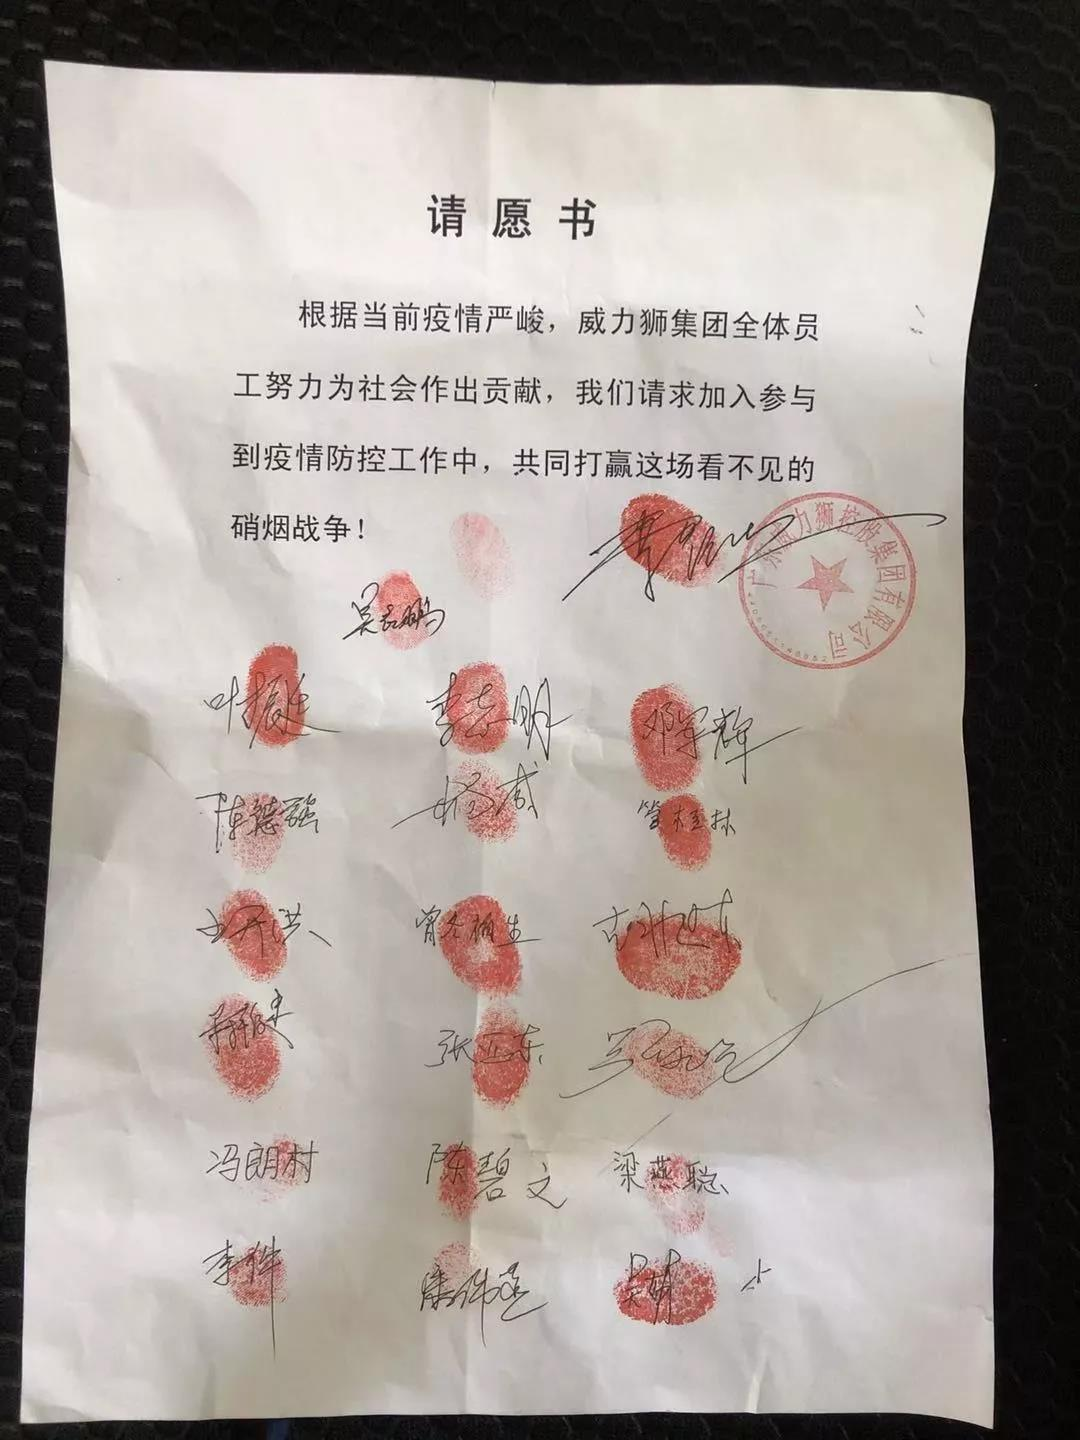 请愿书
根据当前疫情严峻，威力狮集团全体员
工努力为社会作出贡献，我们请求加入参与
到疫情防控工作中，共同打赢这场看不见的
硝烟战争！
广东威力狮控股集团有限公司
叶振廷 李志明 邓军辉
陈懿强 杨威 管桂林
曾冬梅生
张正东
冯朗村 陈碧文 梁燕聪
李伟